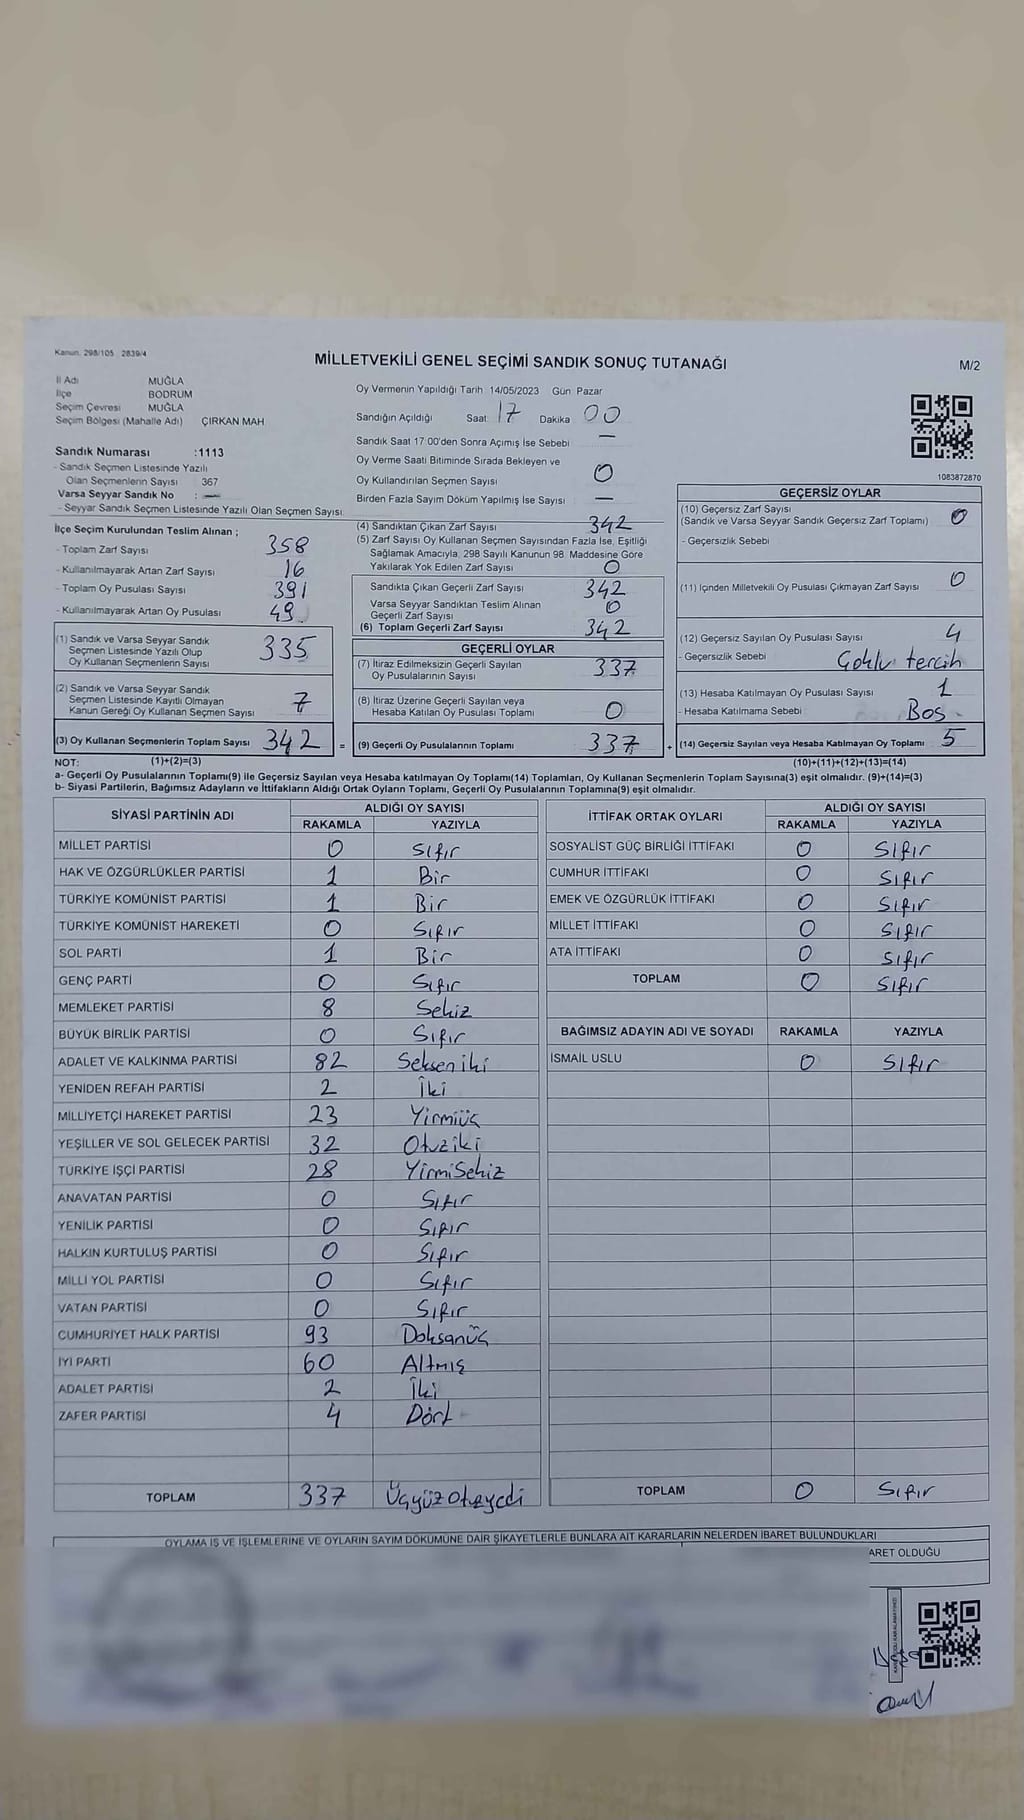 Kanun. 298/105 2839/4
MİLLETVEKİLİ GENEL SEÇİMİ SANDIK SONUÇ TUTANAĞI
M/2
İl Adı MUĞLA
İlçe BODRUM
Seçim Çevresi MUĞLA
Seçim Bölgesi (Mahalle Adı) ÇIRKAN MAH
Sandık Numarası :1113
- Sandık Seçmen Listesinde Yazılı
Olan Seçmenlerin Sayısı 367
Varsa Seyyar Sandık No : —
- Seyyar Sandık Seçmen Listesinde Yazılı Olan Seçmen Sayısı:
Oy Vermenin Yapıldığı Tarih 14/05/2023 Gün: Pazar
Sandığın Açıldığı Saat: 17 Dakika 00
Sandık Saat 17:00'den Sonra Açımış İse Sebebi —
Oy Verme Saati Bitiminde Sırada Bekleyen ve
Oy Kullandırılan Seçmen Sayısı 0
Birden Fazla Sayım Döküm Yapılmış İse Sayısı —
1083872870
İlçe Seçim Kurulundan Teslim Alınan ;
- Toplam Zarf Sayısı 358
- Kullanılmayarak Artan Zarf Sayısı 16
- Toplam Oy Pusulası Sayısı 391
- Kullanılmayarak Artan Oy Pusulası 49
(1) Sandık ve Varsa Seyyar Sandık
Seçmen Listesinde Yazılı Olup
Oy Kullanan Seçmenlerin Sayısı 335
(2) Sandık ve Varsa Seyyar Sandık
Seçmen Listesinde Kayıtlı Olmayan
Kanun Gereği Oy Kullanan Seçmen Sayısı 7
(3) Oy Kullanan Seçmenlerin Toplam Sayısı 342 =
(4) Sandıktan Çıkan Zarf Sayısı 342
(5) Zarf Sayısı Oy Kullanan Seçmen Sayısından Fazla İse, Eşitliği
Sağlamak Amacıyla, 298 Sayılı Kanunun 98. Maddesine Göre
Yakılarak Yok Edilen Zarf Sayısı 0
Sandıkta Çıkan Geçerli Zarf Sayısı 342
Varsa Seyyar Sandıktan Teslim Alınan
Geçerli Zarf Sayısı 0
(6) Toplam Geçerli Zarf Sayısı 342
GEÇERLİ OYLAR
(7) İtiraz Edilmeksizin Geçerli Sayılan
Oy Pusulalarının Sayısı 337
(8) İtiraz Üzerine Geçerli Sayılan veya
Hesaba Katılan Oy Pusulası Toplamı 0
(9) Geçerli Oy Pusulalarının Toplamı 337 +
GEÇERSİZ OYLAR
(10) Geçersiz Zarf Sayısı
(Sandık ve Varsa Seyyar Sandık Geçersiz Zarf Toplamı) 0
- Geçersizlik Sebebi
(11) İçinden Milletvekili Oy Pusulası Çıkmayan Zarf Sayısı 0
(12) Geçersiz Sayılan Oy Pusulası Sayısı 4
- Geçersizlik Sebebi Çoklu tercih
(13) Hesaba Katılmayan Oy Pusulası Sayısı 1
- Hesaba Katılmama Sebebi Boş
(14) Geçersiz Sayılan veya Hesaba Katılmayan Oy Toplamı 5
NOT: (1)+(2)=(3) (10)+(11)+(12)+(13)=(14)
a- Geçerli Oy Pusulalarının Toplamı(9) ile Geçersiz Sayılan veya Hesaba katılmayan Oy Toplamı(14) Toplamları, Oy Kullanan Seçmenlerin Toplam Sayısına(3) eşit olmalıdır. (9)+(14)=(3)
b- Siyasi Partilerin, Bağımsız Adayların ve İttifakların Aldığı Ortak Oyların Toplamı, Geçerli Oy Pusulalarının Toplamına(9) eşit olmalıdır.
SİYASİ PARTİNİN ADI ALDIĞI OY SAYISI
RAKAMLA YAZIYLA
MİLLET PARTİSİ 0 Sıfır
HAK VE ÖZGÜRLÜKLER PARTİSİ 1 Bir
TÜRKİYE KOMÜNİST PARTİSİ 1 Bir
TÜRKİYE KOMÜNİST HAREKETİ 0 Sıfır
SOL PARTİ 1 Bir
GENÇ PARTİ 0 Sıfır
MEMLEKET PARTİSİ 8 Sekiz
BÜYÜK BİRLİK PARTİSİ 0 Sıfır
ADALET VE KALKINMA PARTİSİ 82 Sekseniki
YENİDEN REFAH PARTİSİ 2 İki
MİLLİYETÇİ HAREKET PARTİSİ 23 Yirmiüç
YEŞİLLER VE SOL GELECEK PARTİSİ 32 Otuziki
TÜRKİYE İŞÇİ PARTİSİ 28 YirmiSekiz
ANAVATAN PARTİSİ 0 Sıfır
YENİLİK PARTİSİ 0 Sıfır
HALKIN KURTULUŞ PARTİSİ 0 Sıfır
MİLLİ YOL PARTİSİ 0 Sıfır
VATAN PARTİSİ 0 Sıfır
CUMHURİYET HALK PARTİSİ 93 Doksanüç
İYİ PARTİ 60 Altmış
ADALET PARTİSİ 2 İki
ZAFER PARTİSİ 4 Dört
TOPLAM 337 Üçyüzotuzyedi
İTTİFAK ORTAK OYLARI ALDIĞI OY SAYISI
RAKAMLA YAZIYLA
SOSYALİST GÜÇ BİRLİĞİ İTTİFAKI 0 Sıfır
CUMHUR İTTİFAKI 0 Sıfır
EMEK VE ÖZGÜRLÜK İTTİFAKI 0 Sıfır
MİLLET İTTİFAKI 0 Sıfır
ATA İTTİFAKI 0 Sıfır
TOPLAM 0 Sıfır
BAĞIMSIZ ADAYIN ADI VE SOYADI RAKAMLA YAZIYLA
İSMAİL USLU 0 Sıfır
TOPLAM 0 Sıfır
OYLAMA İŞ VE İŞLEMLERİNE VE OYLARIN SAYIM DÖKÜMÜNE DAİR ŞİKAYETLERLE BUNLARA AİT KARARLARIN NELERDEN İBARET BULUNDUKLARI
ARET OLDUĞU